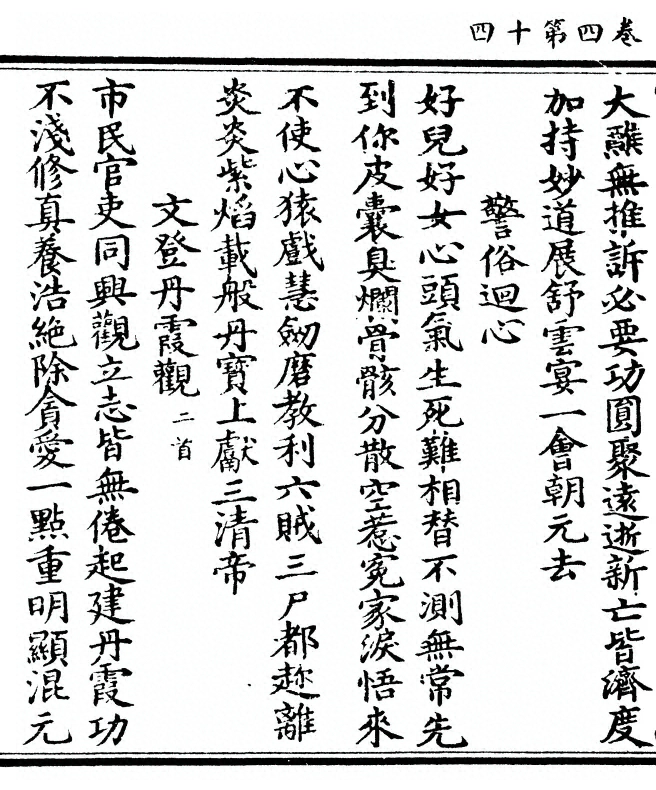 卷四第十四
大醮無推訴必要功圓聚遠逝新亡皆濟度
加持妙道展舒雲宴一會朝元去
警俗迴心
好兒好女心頭氣生死難相替不測無常先
到你皮囊臭爛骨骸分散空惹冤家淚悟來
不使心猿戲慧劒磨教利六賊三尸都趂離
炎炎紫焰載般丹寶上獻三清帝
文登丹霞觀二首
市民官吏同興觀立志皆無倦起建丹霞功
不淺修真養浩絶除貪愛一點重明顯混元